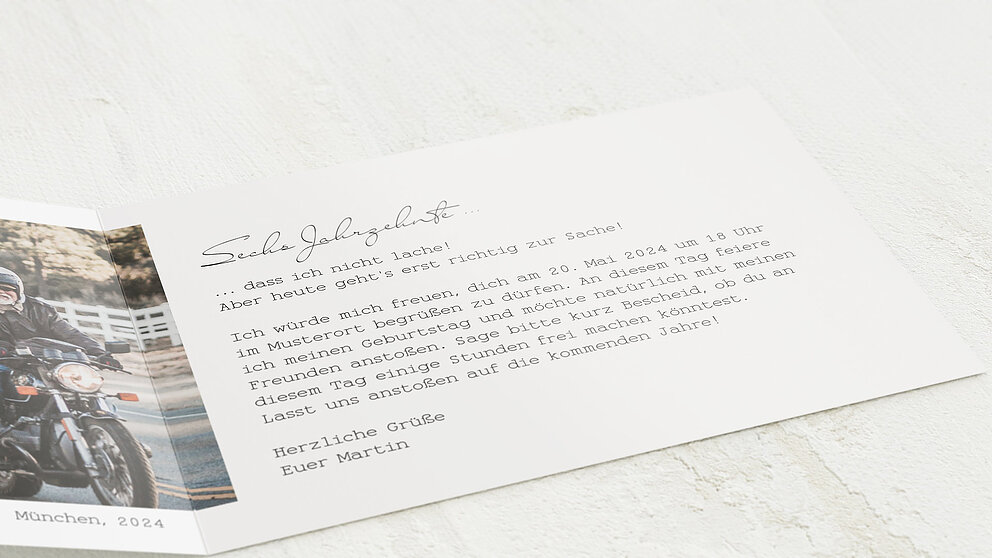 Sechs Jahrzehnte ...
... dass ich nicht lache!
Aber heute geht's erst richtig zur Sache!
Ich würde mich freuen, dich am 20. Mai 2024 um 18 Uhr
im Musterort begrüßen zu dürfen. An diesem Tag feiere
ich meinen Geburtstag und möchte natürlich mit meinen
Freunden anstoßen. Sage bitte kurz Bescheid, ob du an
diesem Tag einige Stunden frei machen könntest.
Lasst uns anstoßen auf die kommenden Jahre!
Herzliche Grüße
Euer Martin
München, 2024